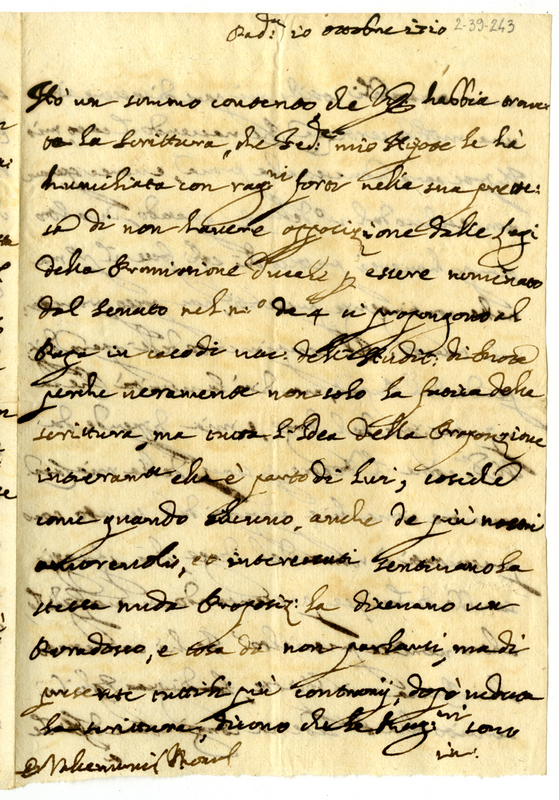 Pad.a 10 ottobre 1710 2-39-243
Hò un sommo contento che V.S. habbia trova-
to la scrittura, che Fed.co mio Nipote le hà
humiliata con rag.ni forti nella sua prete:
sa di non havere opposizione dalle Legi
della Promissione Ducale p essere nominato
dal Senato nel n.o de 4 si propongono al
Papa in caso di vac: dell' Audit: di Ruota
perche veramente non solo la fatica della
scrittura, ma tutta l'Idea della Proposizione
intieram.te che è parto di Lui; cosiche
come quando alcuno, anche de più nostri
amorevoli, et interessati sentivano la
stessa nuda Proposiz: la dicevano un
Paradosso, e cosa da non parlarsi, ma di
presente tutti li più contrarij, dopò veduta
la scrittura, dicono che le Rag.ni sono
in: